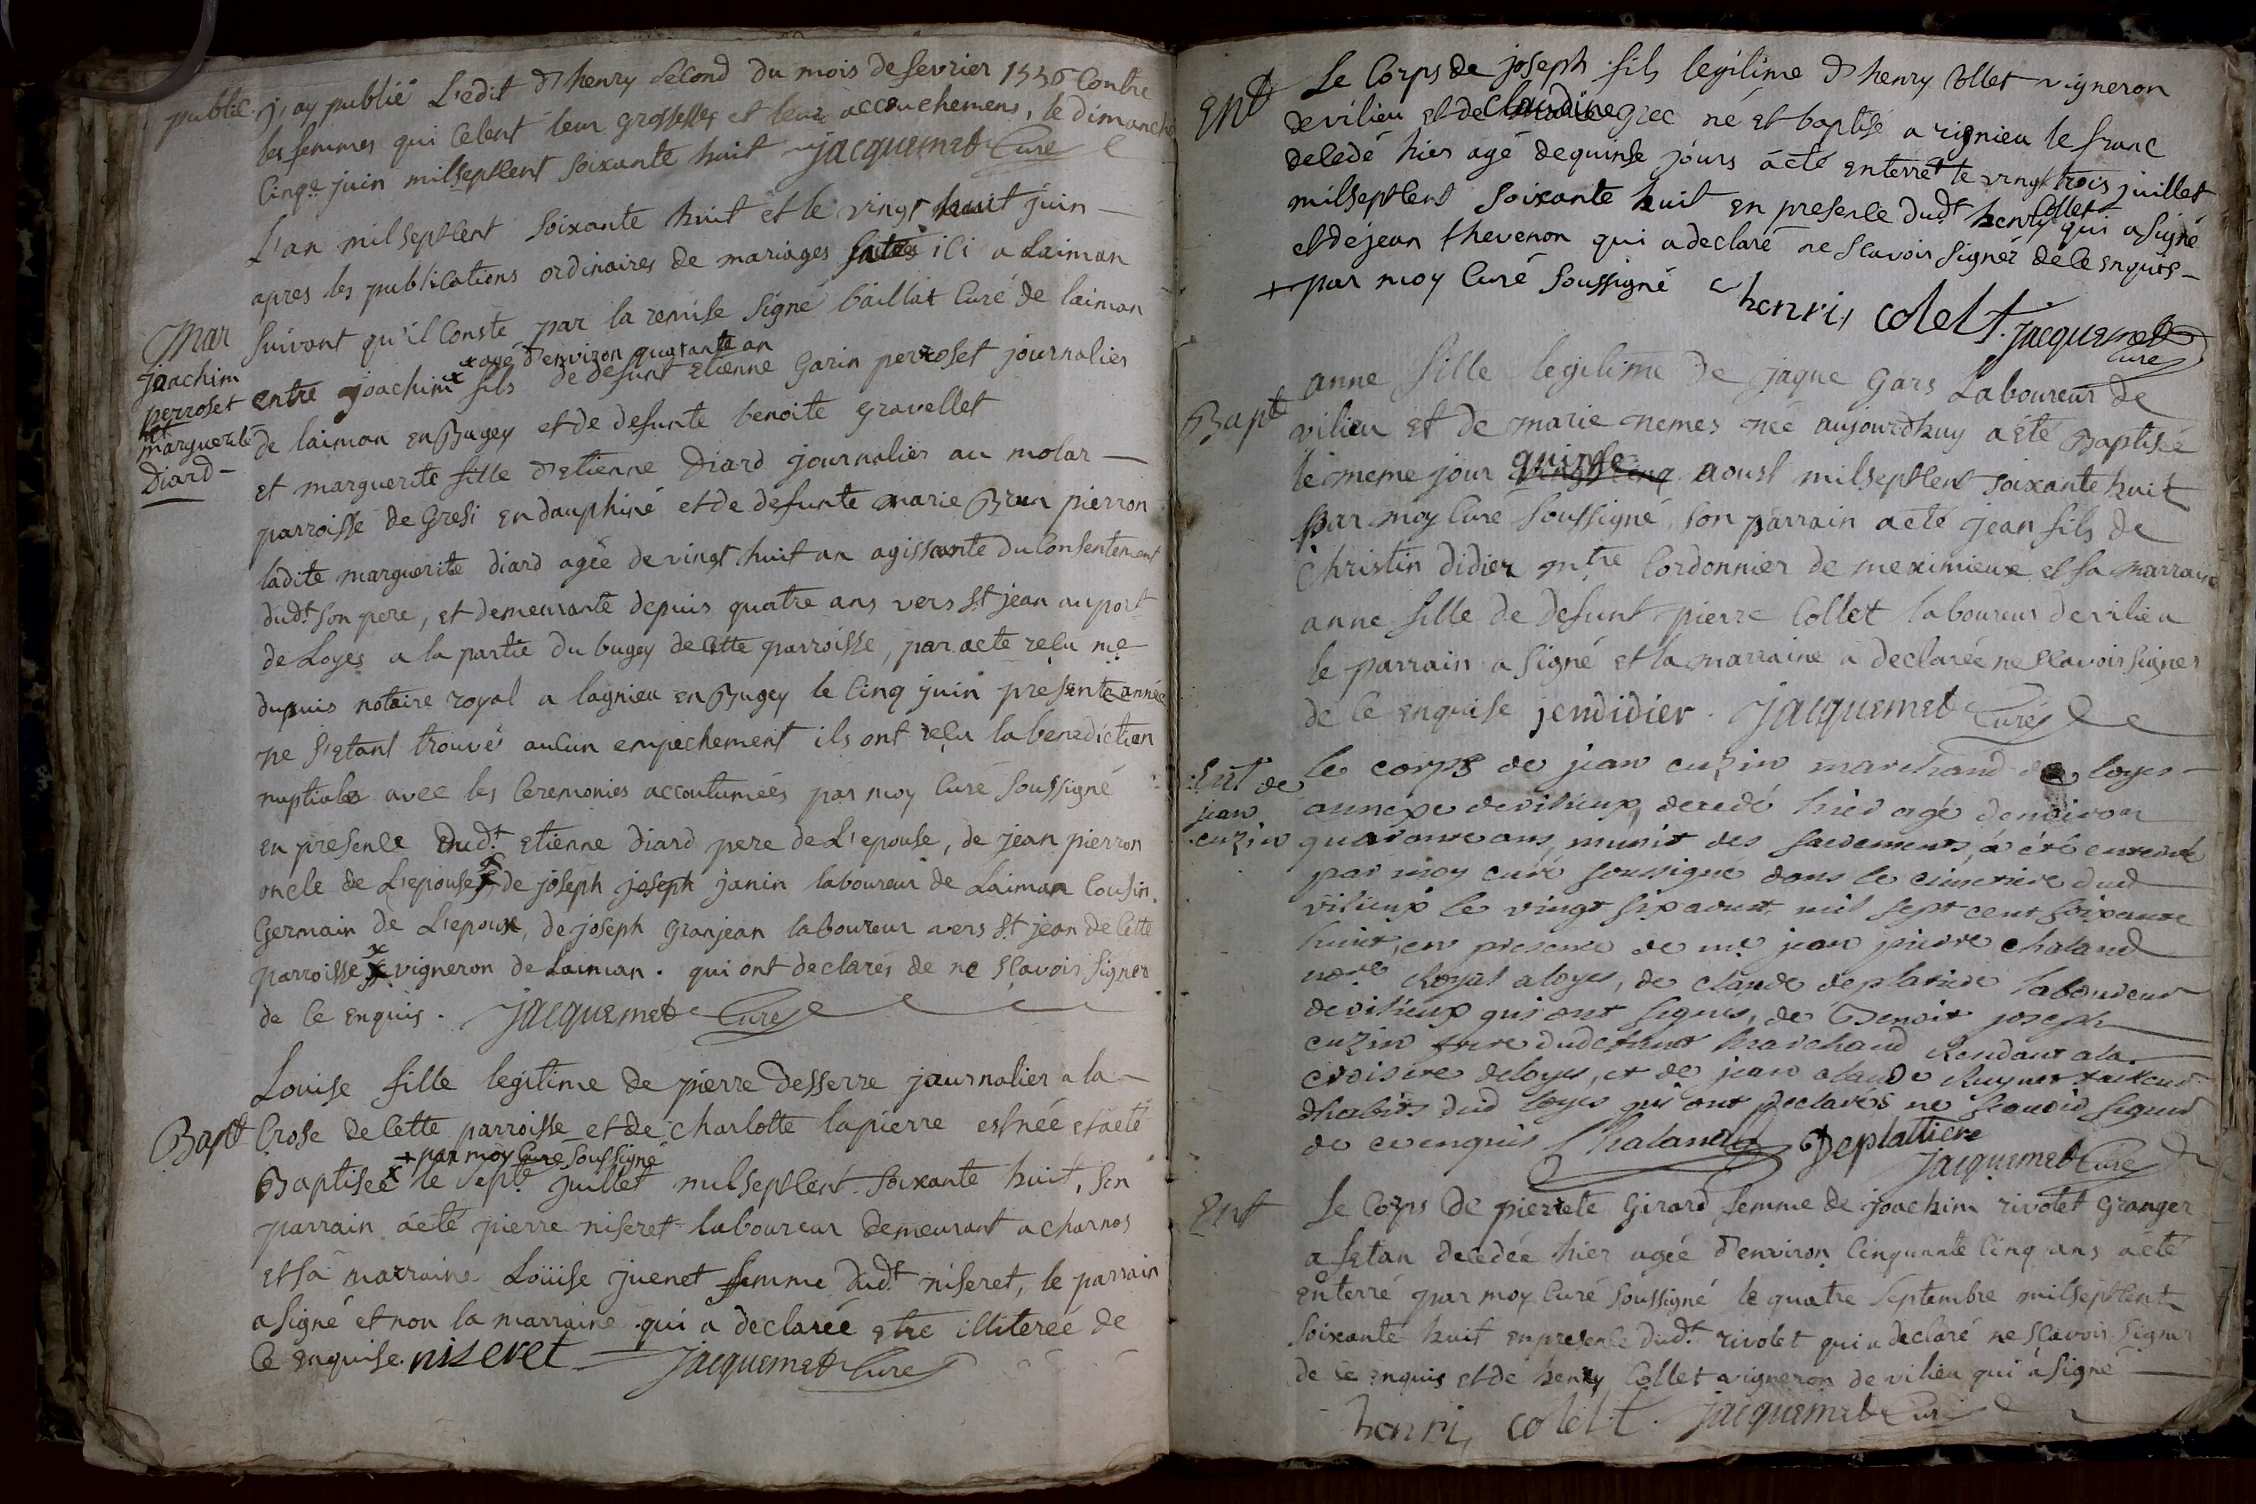 public. j'ay publié L'edit d'henry second du mois de fevrier 1556 Contre
les femmes qui Celent leur grossesses et leur accouchemens, le dimanche
Cinqe juin milseptcent soixante huit jacquemet Curé
L'an milseptcent soixante huit et le vingt huit juin
apres les publications ordinaires de mariages faites ici a Laiman
suivant qu'il Conste par la remise signé baillat Curé de laiman
Mar
joachim
perroset
et
marguerite
Diard
x agé d'environ quarante an
entre joachim x fils de defunt Etienne Garin perroset journalier
de laiman en Bugey et de defunte benoite gravellet
et marguerite fille d'Etienne Diard journalier au molar
parroisse de Gresi en dauphiné et de defunte marie Brun pierron
ladite marguerite diard agée de vingt huit an agissante du Consentement
dudt son pere, et demeurante depuis quatre ans vers St jean au port
de Loyes a la partie du bugey de Cette parroisse, par acte reçu me
dupuis notaire royal a lagnieu en Bugey le Cinq juin presente année
ne s'Etant trouvés aucun empechement ils ont reçu la benediction
nuptiale avec les Ceremonies accoutumées par moy Curé soussigné
en presence dudt Etienne diard pere de L'epouse, de jean pierron
oncle de L'epouse x de joseph joseph janin laboureur de Laiman Cousin
Germain de L'epoux, de joseph Granjean laboureur vers St jean de Cette
parroisse x vigneron de Laiman. qui ont declarés de ne sçavoir signer
de Ce enquis. jacquemet Curé
Louise fille legitime de pierre Desserre journalier a la
Bapt Crose de Cette parroisse et de Charlotte lapierre est née et a eté
+ par moy Curé soussigné
Baptisée x le sept juillet milseptcent soixante huit, son
parrain a eté pierre niseret laboureur demeurant a charnos
et sa marraine Loüise juenet femme dudt niseret, le parrain
a signé et non la marraine qui a declarée etre illiterée de
Ce enquise. niseret jacquemet Curé
Ent Le Corps de joseph fils legitime d'henry Collet vigneron
de vilieu et de Claudine grec né et baptisé a rignieu le franc
decedé hier agé de quinse jours a eté enterré le vingt trois juillet
milseptcent soixante huit en presence dudt henry Collet qui a signé
et de jean thevenon qui a declaré ne sçavoir signer de Ce enquis
+ par moy Curé soussigné henri colelt. jacquemet
Curé
Bapt anne fille legitime de jaque Gars Laboureur de
vilieu et de marie nemes née aujourdhuy a eté Baptisée
le meme jour quinse aoust milseptcent soixante huit
par moy Curé soussigné, son parrain a eté jean fils de
Christin didier mtre Cordonnier de meximieux et sa marraine
anne fille de defunt pierre Collet laboureur de vilieu
le parrain a signé et la marraine a declarée ne sçavoir signer
de Ce enquise jendidier. jacquemet Curé
Ent de
jean
cuzin
le corps de jean cuzin marchand de loyes
annexe de vilieux, decedé hier agé denviron
quarante ans, munit des sacrements, a été enterré
par moy curé soussigné dans le cimetiere dud
vilieux le vingt six aoust mil sept cent soixante
huit, en presence de me jean pierre chaland
nore Royal a loyes, de claude deplatiere laboureur
de vilieux qui ont signés, de Benoit joseph
cuzin frere dud marchand Residant a la
croisette de loyes, et de jean claude tailleur
dhabits dud loyes qui ont declarés ne scavoir signer
de ce enquis Chaland Deplattiere
jacquemet Curé
Ent Le Corps de pierrete Girard femme de joachim rivolet Granger
a Setan decedée hier agée d'environ Cinquante Cinq ans a eté
enterré par moy Curé soussigné le quatre septembre milseptcent
soixante huit en presence dudt rivolet qui a declaré ne sçavoir signer
de Ce enquis et de henry Collet vigneron de vilieu qui a signé
henri colelt. jacquemet Curé